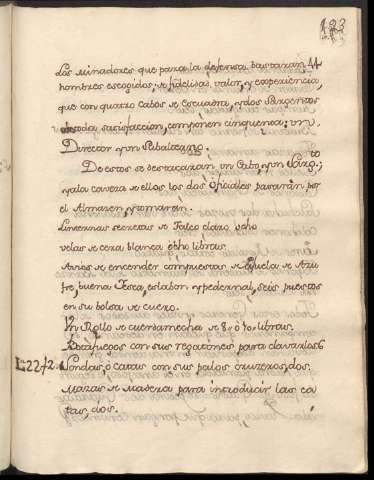 123
Los Minadores que para la defensa bastaran 44
hombres escogidos, de fidelidad, valor, y experiencia,
que con quatro Cabos de Escuadra, y dos Sargentos
de toda satisfaccion, componen cinquenta; un
Director y un Subalterno.
De estos se destacaran un Cabo, y un Sarg.to;
y a la caveza de ellos los dos Oficiales pasarán por
el Almazen, y tomarán.
Linternas secretas de Talco claro ocho
velas de cera blanca ocho libras.
Avios de encender compuestos de Pajuela de Azu
fre, buena Yesca, eslabon y pedernal, seis puestos
en su bolsa de cuero.
Un Rollo de cuerdamecha de 8. o 10 libras.
Rotafuegos con sus regatones para clavarlos 6
L.2272. Sondas, o catas con sus palos cruzeros, dos.
Mazas de Madera para introducir las ca
tas, dos.